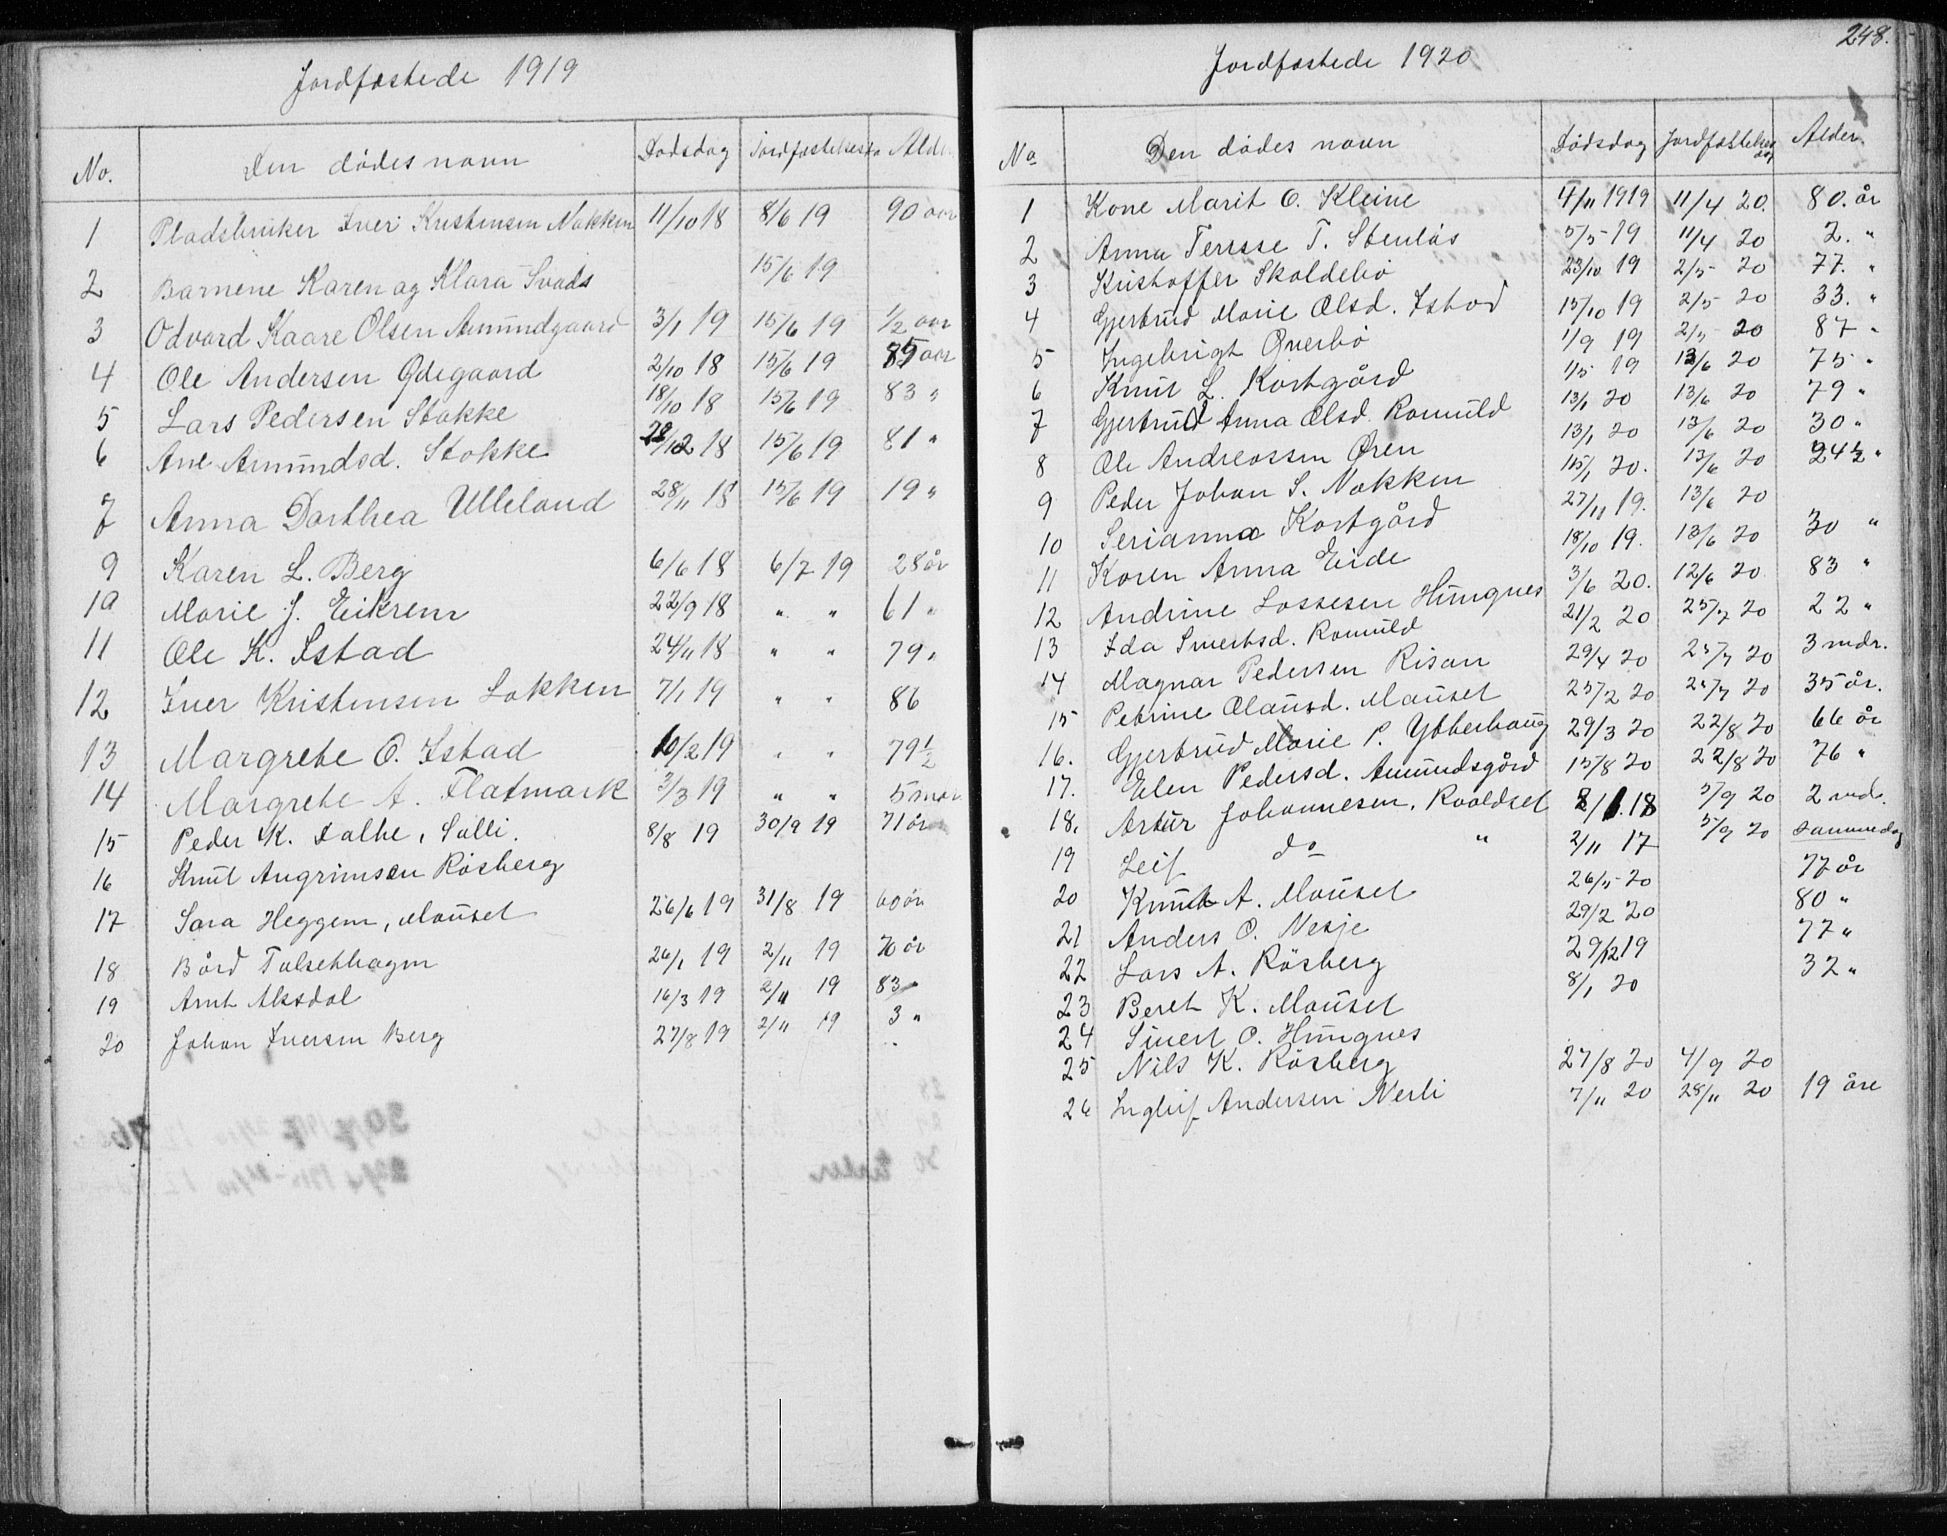 Jordfæstede 1919
No. Den dødes navn Dødsdag Jordfæstelsesda Alder
1 Pladsbruker Iver Kristensen Nakken 11/10 18 8/6 19 90 aar
2 Barnene Karen og Klara Svads 15/6 19
3 Odvard Kaare Olsen Amundgaard 3/1 19 15/6 19 1/2 aar
4 Ole Andersen Ødegaard 2/10 18 15/6 19 85 aar
5 Lars Pedersen Stokke 18/10 18 15/6 19 83 "
6 Ane Amundsd. Stokke 28/12 18 15/6 19 81 "
7 Anna Dorthea Ulleland 28/11 18 15/6 19 19 "
9 Karen L. Berg 6/6 18 6/7 19 28 år
10 Marie J. Eikrem 22/9 18 " " 61 "
11 Ole K. Istad 24/11 18 " " 79 "
12 Iver Kristensen Løkken 7/1 19 " " 86
13 Margrete O. Istad 10/2 19 " " 79 1/2
14 Margrete A. Flatmark 3/3 19 " " 5 mdr
15 Peder K. Dalhe, Sølli. 8/8 19 30/9 19 71 år
16 Knut Angrimsen Røsberg
17 Sara Heggem, Mauset 26/6 19 31/8 19 60 år
18 Bård Talsethhagen 26/1 19 2/11 19 70 år
19 Arnt Aksdal 16/3 19 2/11 19 83 "
20 Johan Iversen Berg 27/8 19 2/11 19 3 "
248.
Jordfæstede 1920
No Den dødes navn Dødsdag Jordfæstelsesdag Alder.
1 Kone Marit O. Kleive 4/11 1919 11/4 20. 80. år
2 Anna Terese T. Stenløs 5/5 19 11/4 20 2. "
3 Kristoffer Skaldebø 23/10 19 2/5 20 77. "
4 Gjertrud Marie Olsd. Istad 15/10 19 2/5 20 33. "
5 Ingebrigt Øverbø 1/9 19 2/5 20 87 "
6 Knut L. Kortgård 1/5 19 13/6 20 75 "
7 Gjertrud Anna Olsd. Romuld 13/1 20 13/6 20 79 "
8 Ole Andreassen Øren 13/1 20 13/6 20 30 "
9 Peder Johan S. Nakken 15/1 20. 13/6 20 24 1/2 "
10 Serianna Kortgård 27/11 19. 13/6 20
11 Karen Anna Eide 18/10 19. 13/6 20 30 "
12 Andrine Lassesen Hungnes 3/6 20. 12/6 20 83 "
13 Ida Sivertsd. Romuld 21/2 20 25/7 20 22 "
14 Magnar Pedersen Risan 29/4 20 25/7 20 3 mdr.
15 Petrine Olausd. Mauset 25/2 20 25/7 20 35 år.
16. Gjertrud Marie P. Ytterhaug 29/3 20 22/8 20 66 år
17. Elen Pedersd. Amundsgård 15/8 20 22/8 20 76 "
18. Artur Johannesen, Roaldset 8/1.18 5/9 20 2 md.
19 Leif do " 2/11 17 5/9 20 samme dag
20 Knut A. Mauset 26/5 20 77 år
21 Anders O. Nesje 29/2 20 80 "
22 Lars A. Røsberg 29/12 19 77 "
23 Beret K. Mauset 8/1 20 32 "
24 Sivert O. Hungnes
25 Nils K. Røsberg 27/8 20 4/9 20
26 Ingleif Andersen Nerli 7/11 20 28/11 20 19 åre